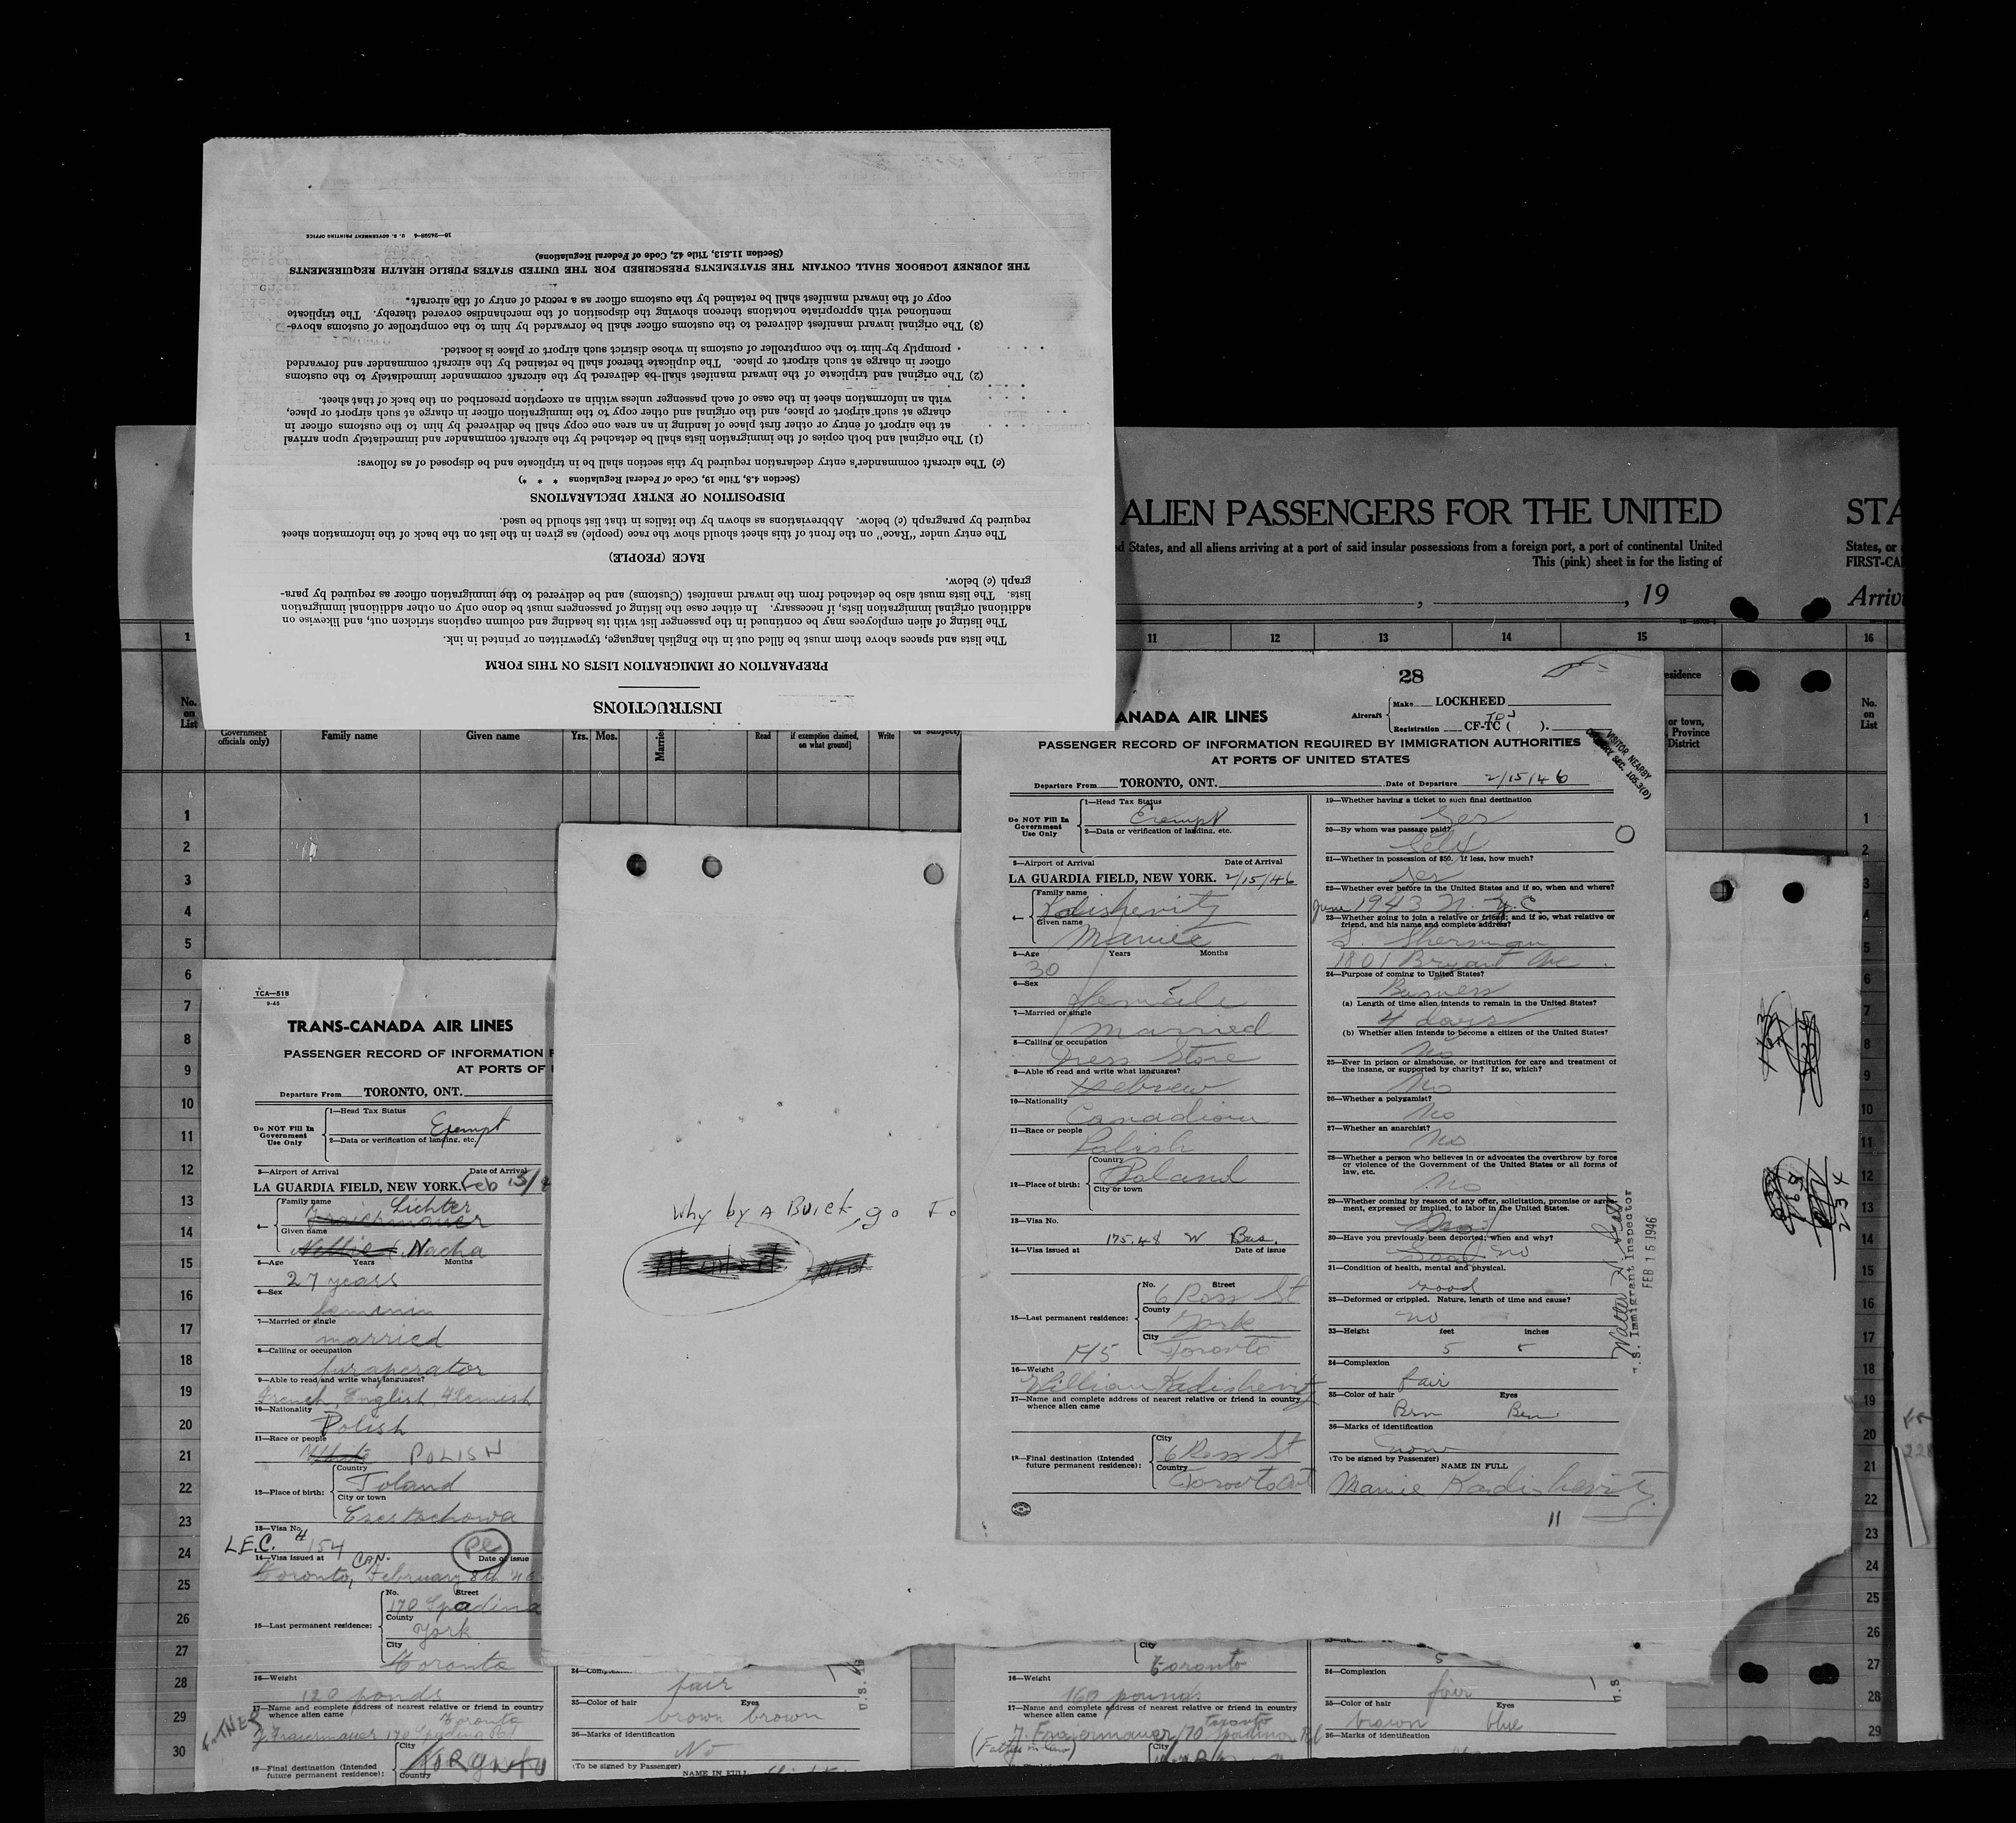 16—24598-4 U. S. GOVERNMENT PRINTING OFFICE
(Section 11.513, Title 42, Code of Federal Regulations)
THE JOURNEY LOGBOOK SHALL CONTAIN THE STATEMENTS PRESCRIBED FOR THE UNITED STATES PUBLIC HEALTH REQUIREMENTS
INSTRUCTIONS
PREPARATION OF IMMIGRATION LISTS ON THIS FORM
The lists and spaces above them must be filled out in the English language, typewritten or printed in ink.
The listing of alien employees may be continued in the passenger list with its heading and column captions stricken out, and likewise on
additional original immigration lists, if necessary. In either case the listing of passengers must be done only on other additional immigration
lists. The lists must also be detached from the inward manifest (Customs) and be delivered to the immigration officer as required by para-
graph (c) below.
RACE (PEOPLE)
The entry under "Race" on the front of this sheet should show the race (people) as given in the list on the back of the information sheet
required by paragraph (c) below. Abbreviations as shown by the italics in that list should be used.
DISPOSITION OF ENTRY DECLARATIONS
(Section 4.5, Title 19, Code of Federal Regulations * * *)
(c) The aircraft commander's entry declaration required by this section shall be in triplicate and be disposed of as follows:
(1) The original and both copies of the immigration lists shall be detached by the aircraft commander and immediately upon arrival
at the airport of entry or other first place of landing in an area one copy shall be delivered by him to the customs officer in
charge at such airport or place, and the original and other copy to the immigration officer in charge at such airport or place,
with an information sheet in the case of each passenger unless within an exception prescribed on the back of that sheet.
(2) The original and triplicate of the inward manifest shall be delivered by the aircraft commander immediately to the customs
officer in charge at such airport or place. The duplicate thereof shall be retained by the aircraft commander and forwarded
promptly by him to the comptroller of customs in whose district such airport or place is located.
(3) The original inward manifest delivered to the customs officer shall be forwarded by him to the comptroller of customs above-
mentioned with appropriate notations thereon showing the disposition of the merchandise covered thereby. The triplicate
copy of the inward manifest shall be retained by the customs officer as a record of entry of the aircraft.
ALIEN PASSENGERS FOR THE UNITED
STA
d States, and all aliens arriving at a port of said insular possessions from a foreign port, a port of continental United
States, or
This (pink) sheet is for the listing of
FIRST-CA
, 19
Arriv
1 11 12 13 14 15 16
No. on List
Government officials only)
Family name
Given name
Yrs. Mos.
Married
Read
if exemption claimed, on what ground]
Write
or subject)
esidence
or town, Province District
No. on List
28
ANADA AIR LINES
Aircraft
Make LOCKHEED
Registration CF-TC ( ).
PASSENGER RECORD OF INFORMATION REQUIRED BY IMMIGRATION AUTHORITIES
AT PORTS OF UNITED STATES
VISITOR NEARBY
SEC. 105.3(D)
Departure From TORONTO, ONT. Date of Departure 2/15/46
Do NOT Fill In Government Use Only
1—Head Tax Status
Exempt
2—Data or verification of landing, etc.
3—Airport of Arrival Date of Arrival
LA GUARDIA FIELD, NEW YORK. 2/15/46
4— Family name
Kadishevitz
Given name
Mamie
5—Age Years Months
30
6—Sex
female
7—Married or single
married
8—Calling or occupation
Dress Store
9—Able to read and write what languages?
Hebrew
10—Nationality
Canadian
11—Race or people
Polish
12—Place of birth: Country
Poland
City or town
13—Visa No.
17548 W Bus.
14—Visa issued at Date of issue
15—Last permanent residence: No. Street
6 Ross St
County
York
City
Toronto
16—Weight
William Kadishevitz
17—Name and complete address of nearest relative or friend in country
whence alien came
18—Final destination (Intended
future permanent residence): City
6 Ross St
Country
Toronto Ont
19—Whether having a ticket to such final destination
Yes
20—By whom was passage paid?
Self
21—Whether in possession of $50. If less, how much?
Yes
22—Whether ever before in the United States and if so, when and where?
June 1943 N. Y. C.
23—Whether going to join a relative or friend; and if so, what relative or
friend, and his name and complete address?
S. Sherman
1801 Bryant Ave.
24—Purpose of coming to United States?
Business
(a) Length of time alien intends to remain in the United States?
4 days
(b) Whether alien intends to become a citizen of the United States?
No
25—Ever in prison or almshouse, or institution for care and treatment of
the insane, or supported by charity? If so, which?
No
26—Whether a polygamist?
No
27—Whether an anarchist?
No
28—Whether a person who believes in or advocates the overthrow by force
or violence of the Government of the United States or all forms of
law, etc.
No
29—Whether coming by reason of any offer, solicitation, promise or agree-
ment, expressed or implied, to labor in the United States.
30—Have you previously been deported; when and why?
no
31—Condition of health, mental and physical.
good
32—Deformed or crippled. Nature, length of time and cause?
no
33—Height feet inches
5 5
34—Complexion
fair
35—Color of hair Eyes
Brn Brn
36—Marks of identification
none
(To be signed by Passenger)
NAME IN FULL
Mamie Kadishevitz
11
Walter N. Scott
U.S. Immigrant Inspector
FEB 15 1946
TCA—518
9-45
TRANS-CANADA AIR LINES
PASSENGER RECORD OF INFORMATION
AT PORTS OF
Departure From TORONTO, ONT.
Do NOT Fill In Government Use Only
1—Head Tax Status
Exempt
2—Data or verification of landing, etc.
3—Airport of Arrival Date of Arrival
LA GUARDIA FIELD, NEW YORK. Feb 15/4
4— Family name
Lichter
Fraiermauer
Given name
Nellie Nacha
5—Age Years Months
27 years
6—Sex
feminin
7—Married or single
married
8—Calling or occupation
fur operator
9—Able to read and write what languages?
French, English, Flemish
10—Nationality
Polish
11—Race or people
White POLISH
12—Place of birth: Country
Poland
City or town
Czestochowa
13—Visa No.
L.E.C. # 154
PL
14—Visa issued at CAN. Date of issue
Toronto, February 8th '46
15—Last permanent residence: No. Street
170 Spadina
County
York
City
Toronto
16—Weight
120 ponds
17—Name and complete address of nearest relative or friend in country
whence alien came Toronto
FATHER
J. Fraiermauer 170 Spadina Rd
18—Final destination (Intended
future permanent residence): City
Toronto
Country
Why by A Buick, go Fo
34—Complexion
fair
35—Color of hair Eyes
brown brown
36—Marks of identification
No
(To be signed by Passenger)
NAME IN FULL
City
Toronto
16—Weight
160 pounds
17—Name and complete address of nearest relative or friend in country
whence alien came
J. Fraiermauer 170 Spadina Rd
Toronto
(Father in law)
City
5
34—Complexion
fair
35—Color of hair Eyes
brown blue
36—Marks of identification
U.S.
163
234
1 2 3 4 5 6 7 8 9 10 11 12 13 14 15 16 17 18 19 20 21 22 23 24 25 26 27 28 29 30
1 2 3 4 5 6 7 8 9 10 11 12 13 14 15 16 17 18 19 20 21 22 23 24 25 26 27 28 29